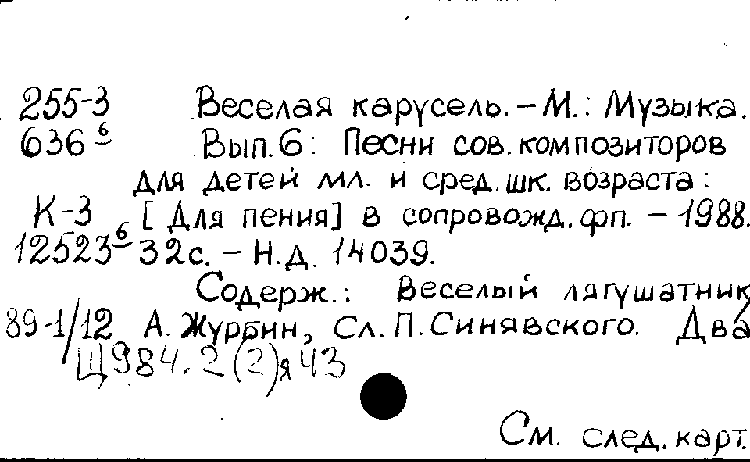 255-3 Веселая карусель. - М.: Музыка.
636 6 Вып. 6: Песни сов. композиторов
для детей мл. и сред. шк. возраста:
К-3 [Для пения] в сопровожд. фп. - 1988.
12523 6 32с. - Н.Д. 14039.
Содерж.: Веселый лягушатник
89-1/12 А. Журбин, Сл. П. Синявского. Два
Щ984.2(2)я43
См. след. карт.